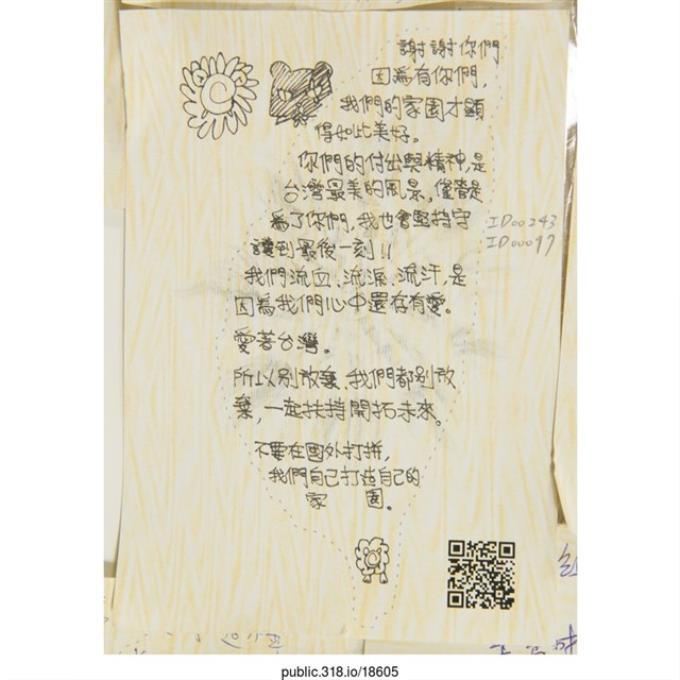 謝謝你們
因為有你們，
我們的家園才顯
得如此美好。
你們的付出與精神，是
台灣最美的風景，僅管是
為了你們，我也會堅持守
護到最後一刻!!
我們流血、流淚、流汗，是
因為我們心中還存有愛。
愛著台灣。
所以別放棄、我們都別放
棄，一起扶持開拓未來。
不要在國外打拼，
我們自己打造自己的
家 園。
ID00243
ID00097
public.318.io/18605